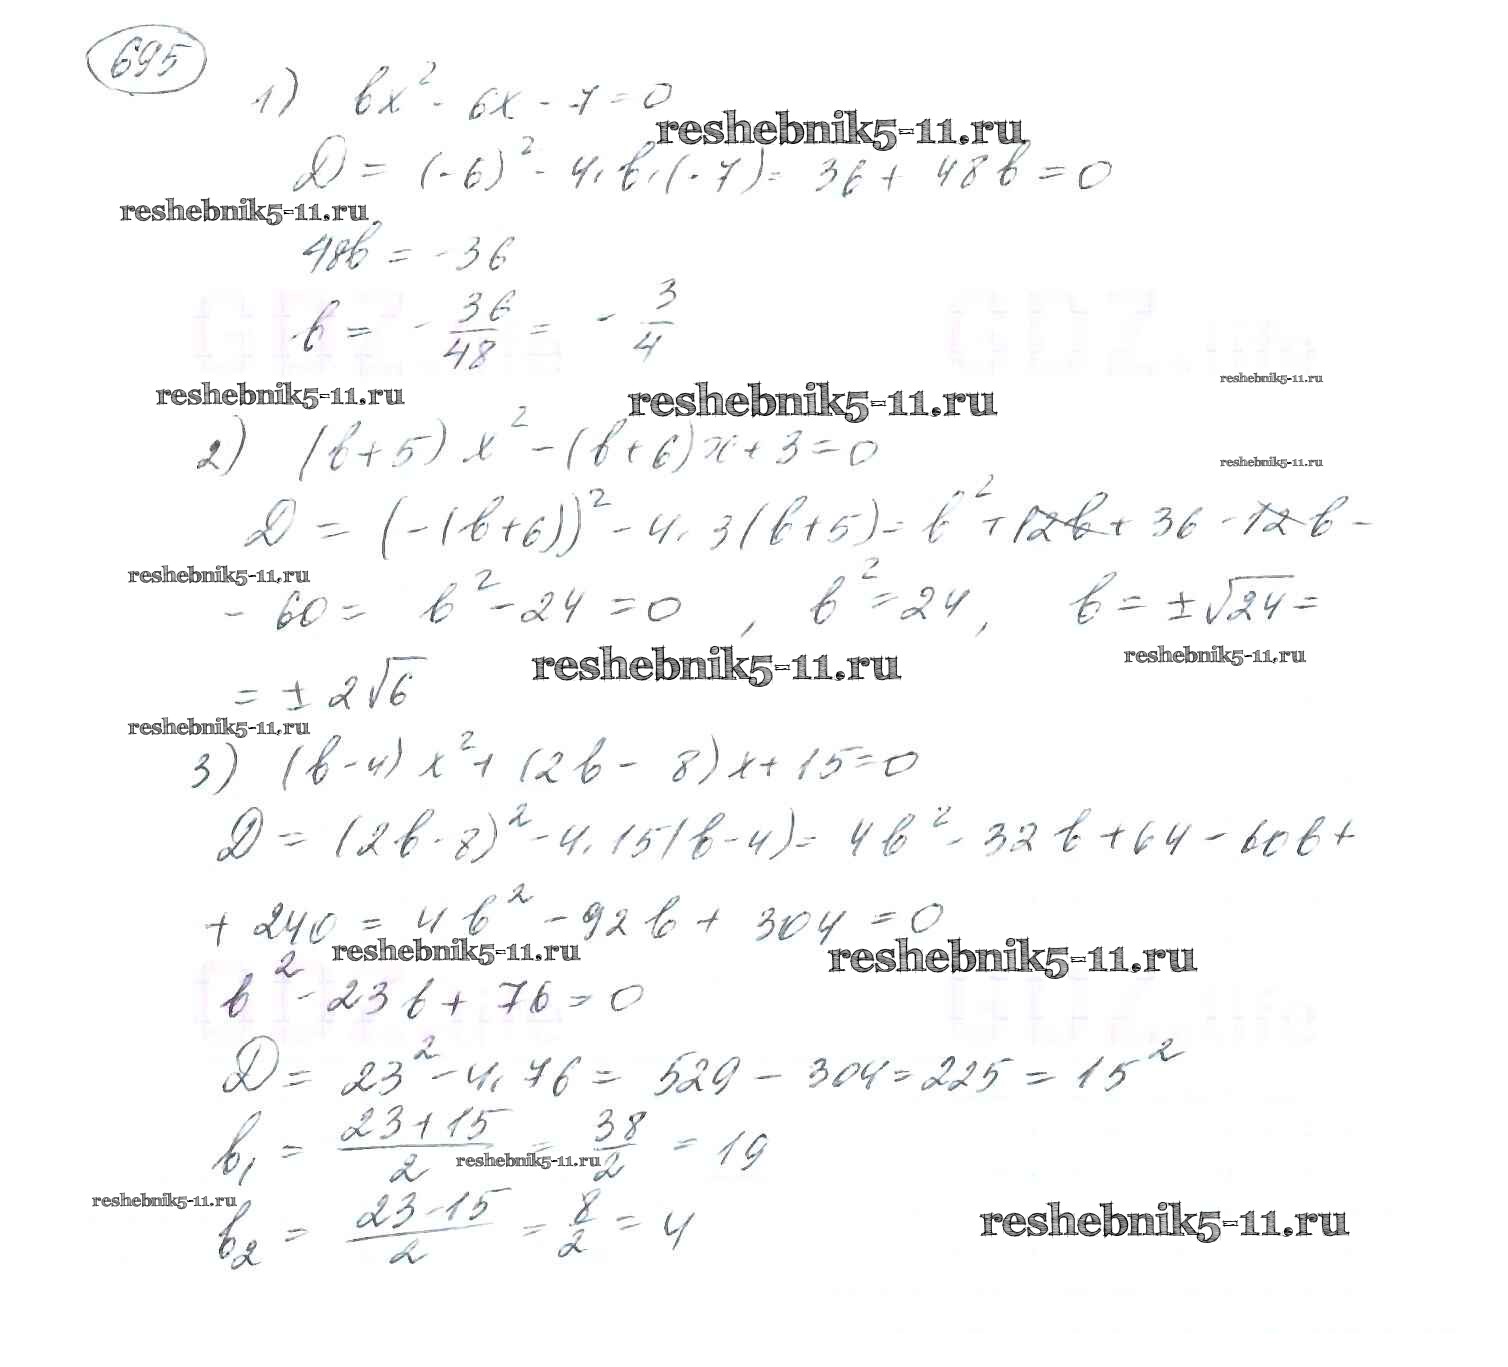 695
1) bx² - 6x - 7 = 0
reshebnik5-11.ru
D = (-6)² - 4·b·(-7) = 36 + 48b = 0
reshebnik5-11.ru
48b = -36
b = -36/48 = -3/4
reshebnik5-11.ru
reshebnik5-11.ru
reshebnik5-11.ru
2) (b+5)x² - (b+6)x + 3 = 0
reshebnik5-11.ru
D = (-(b+6))² - 4·3(b+5) = b² + 12b + 36 - 12b -
reshebnik5-11.ru
- 60 = b² - 24 = 0, b² = 24, b = ±√24 =
reshebnik5-11.ru
reshebnik5-11.ru
= ±2√6
reshebnik5-11.ru
3) (b-4)x² + (2b - 8)x + 15 = 0
D = (2b-8)² - 4·15(b-4) = 4b² - 32b + 64 - 60b +
+ 240 = 4b² - 92b + 304 = 0
reshebnik5-11.ru
reshebnik5-11.ru
b² - 23b + 76 = 0
D = 23² - 4·76 = 529 - 304 = 225 = 15²
b₁ = (23+15)/2 = 38/2 = 19
reshebnik5-11.ru
reshebnik5-11.ru
b₂ = (23-15)/2 = 8/2 = 4
reshebnik5-11.ru
GDZ.life
GDZ.life
GDZ.life
GDZ.life